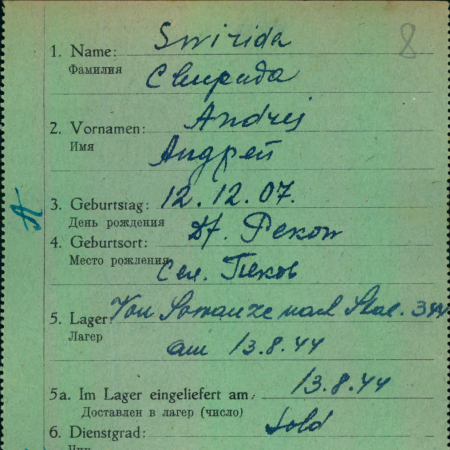 8
1. Name: Swirida
Фамилия Свирида
2. Vornamen: Andrej
Имя Андрей
3. Geburtstag: 12.12.07.
День рождения
4. Geburtsort: Df. Pekow
Место рождения Сел. Пеков
5. Lager: Von nach Stal. 344
Лагер am 13.8.44
5a. Im Lager eingeliefert am: 13.8.44
Доставлен в лагер (число)
6. Dienstgrad: Sold
Чин